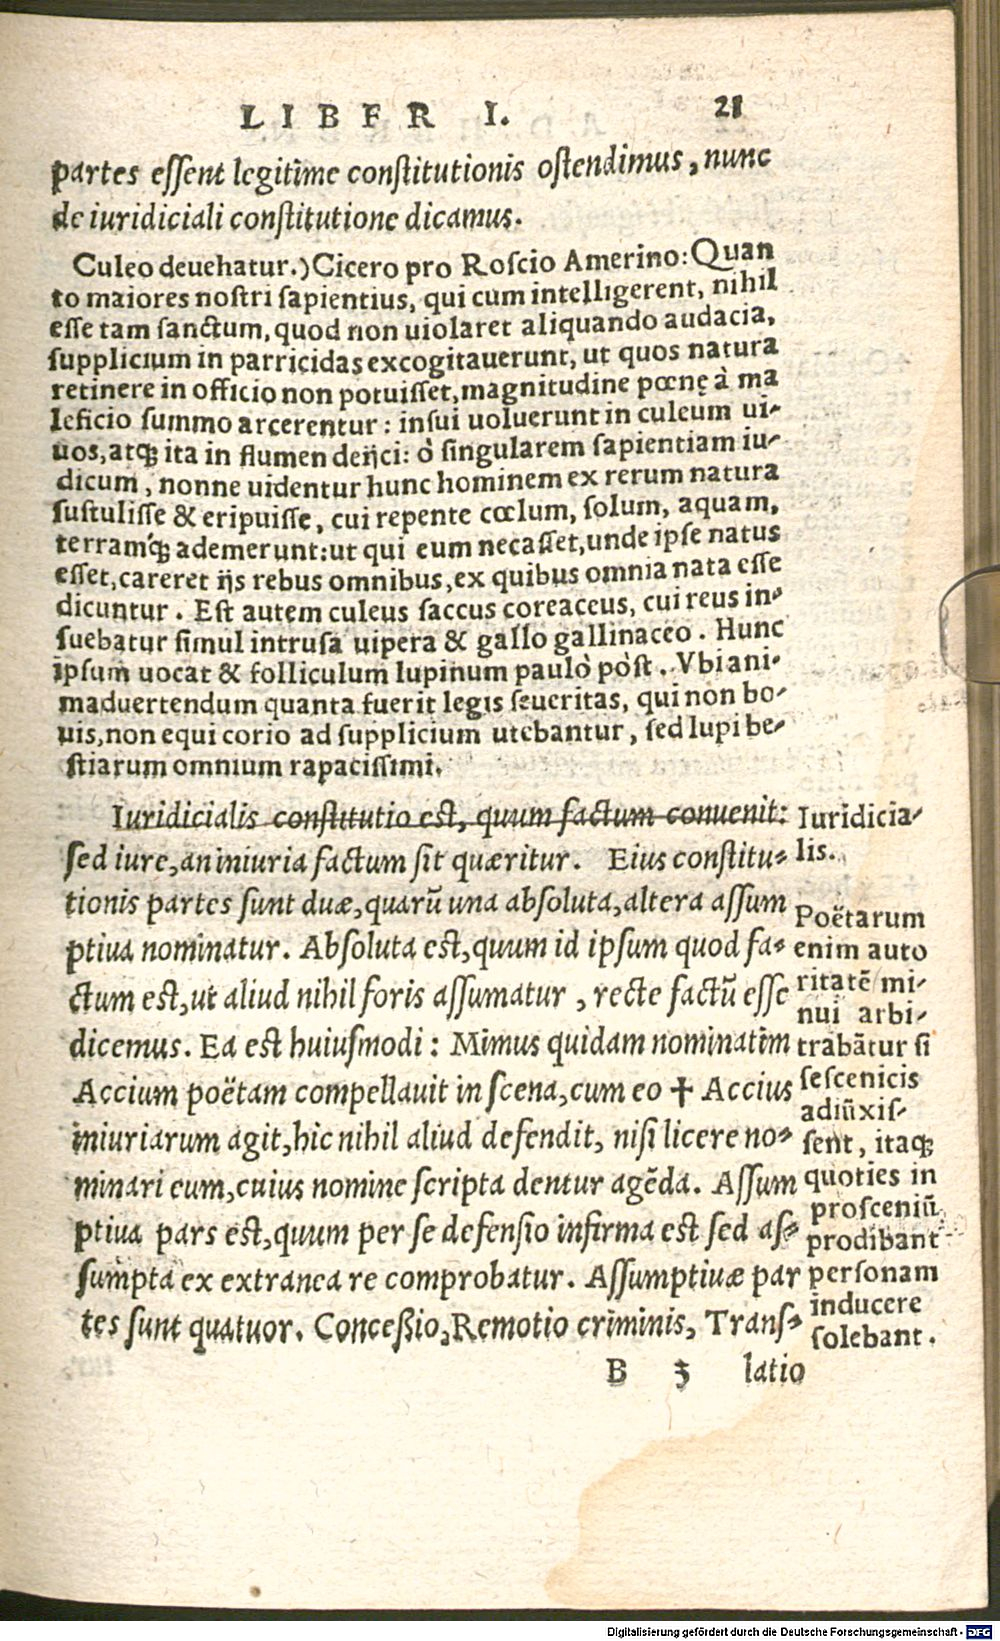 LIBER I. 21
partes essent legitime constitutionis ostendimus, nunc
de iuridiciali constitutione dicamus.
Culeo deuehatur.) Cicero pro Roscio Amerino: Quan
to maiores nostri sapientius, qui cum intelligerent, nihil
esse tam sanctum, quod non uiolaret aliquando audacia,
supplicium in parricidas excogitauerunt, ut quos natura
retinere in officio non potuisset, magnitudine pœnę à ma
leficio summo arcerentur: insui uoluerunt in culeum ui-
uos, atqꝫ ita in flumen deijci: ò singularem sapientiam iu-
dicum, nonne uidentur hunc hominem ex rerum natura
sustulisse & eripuisse, cui repente cœlum, solum, aquam,
terramqꝫ ademerunt: ut qui eum necasset, unde ipse natus
esset, careret ijs rebus omnibus, ex quibus omnia nata esse
dicuntur. Est autem culeus saccus coreaceus, cui reus in-
suebatur simul intrusa uipera & gallo gallinaceo. Hunc
ipsum uocat & folliculum lupinum paulò pòst. Vbi ani-
maduertendum quanta fuerit legis seueritas, qui non bo-
uis, non equi corio ad supplicium utebantur, sed lupi be-
stiarum omnium rapacissimi.
Iuridicialis constitutio est, quum factum conuenit:
sed iure, an iniuria factum sit quæritur. Eius constitu-
tionis partes sunt duæ, quarū una absoluta, altera assum
ptiua nominatur. Absoluta est, quum id ipsum quod fa-
ctum est, ut aliud nihil foris assumatur, recte factū esse
dicemus. Ea est huiusmodi: Mimus quidam nominatim
Accium poëtam compellauit in scena, cum eo ✝ Accius
iniuriarum agit, hic nihil aliud defendit, nisi licere no-
minari eum, cuius nomine scripta dentur agēda. Assum
ptiua pars est, quum per se defensio infirma est sed as-
sumpta ex extranea re comprobatur. Assumptiuæ par
tes sunt quatuor. Concessio, Remotio criminis, Trans-
B 3 latio
Iuridicia-
lis.
Poëtarum
enim auto
ritatē mi-
nui arbi-
trabātur si
se scenicis
adiūxis-
sent, itaqꝫ
quoties in
prosceniū
prodibant
personam
inducere
solebant.
Digitalisierung gefördert durch die Deutsche Forschungsgemeinschaft - DFG